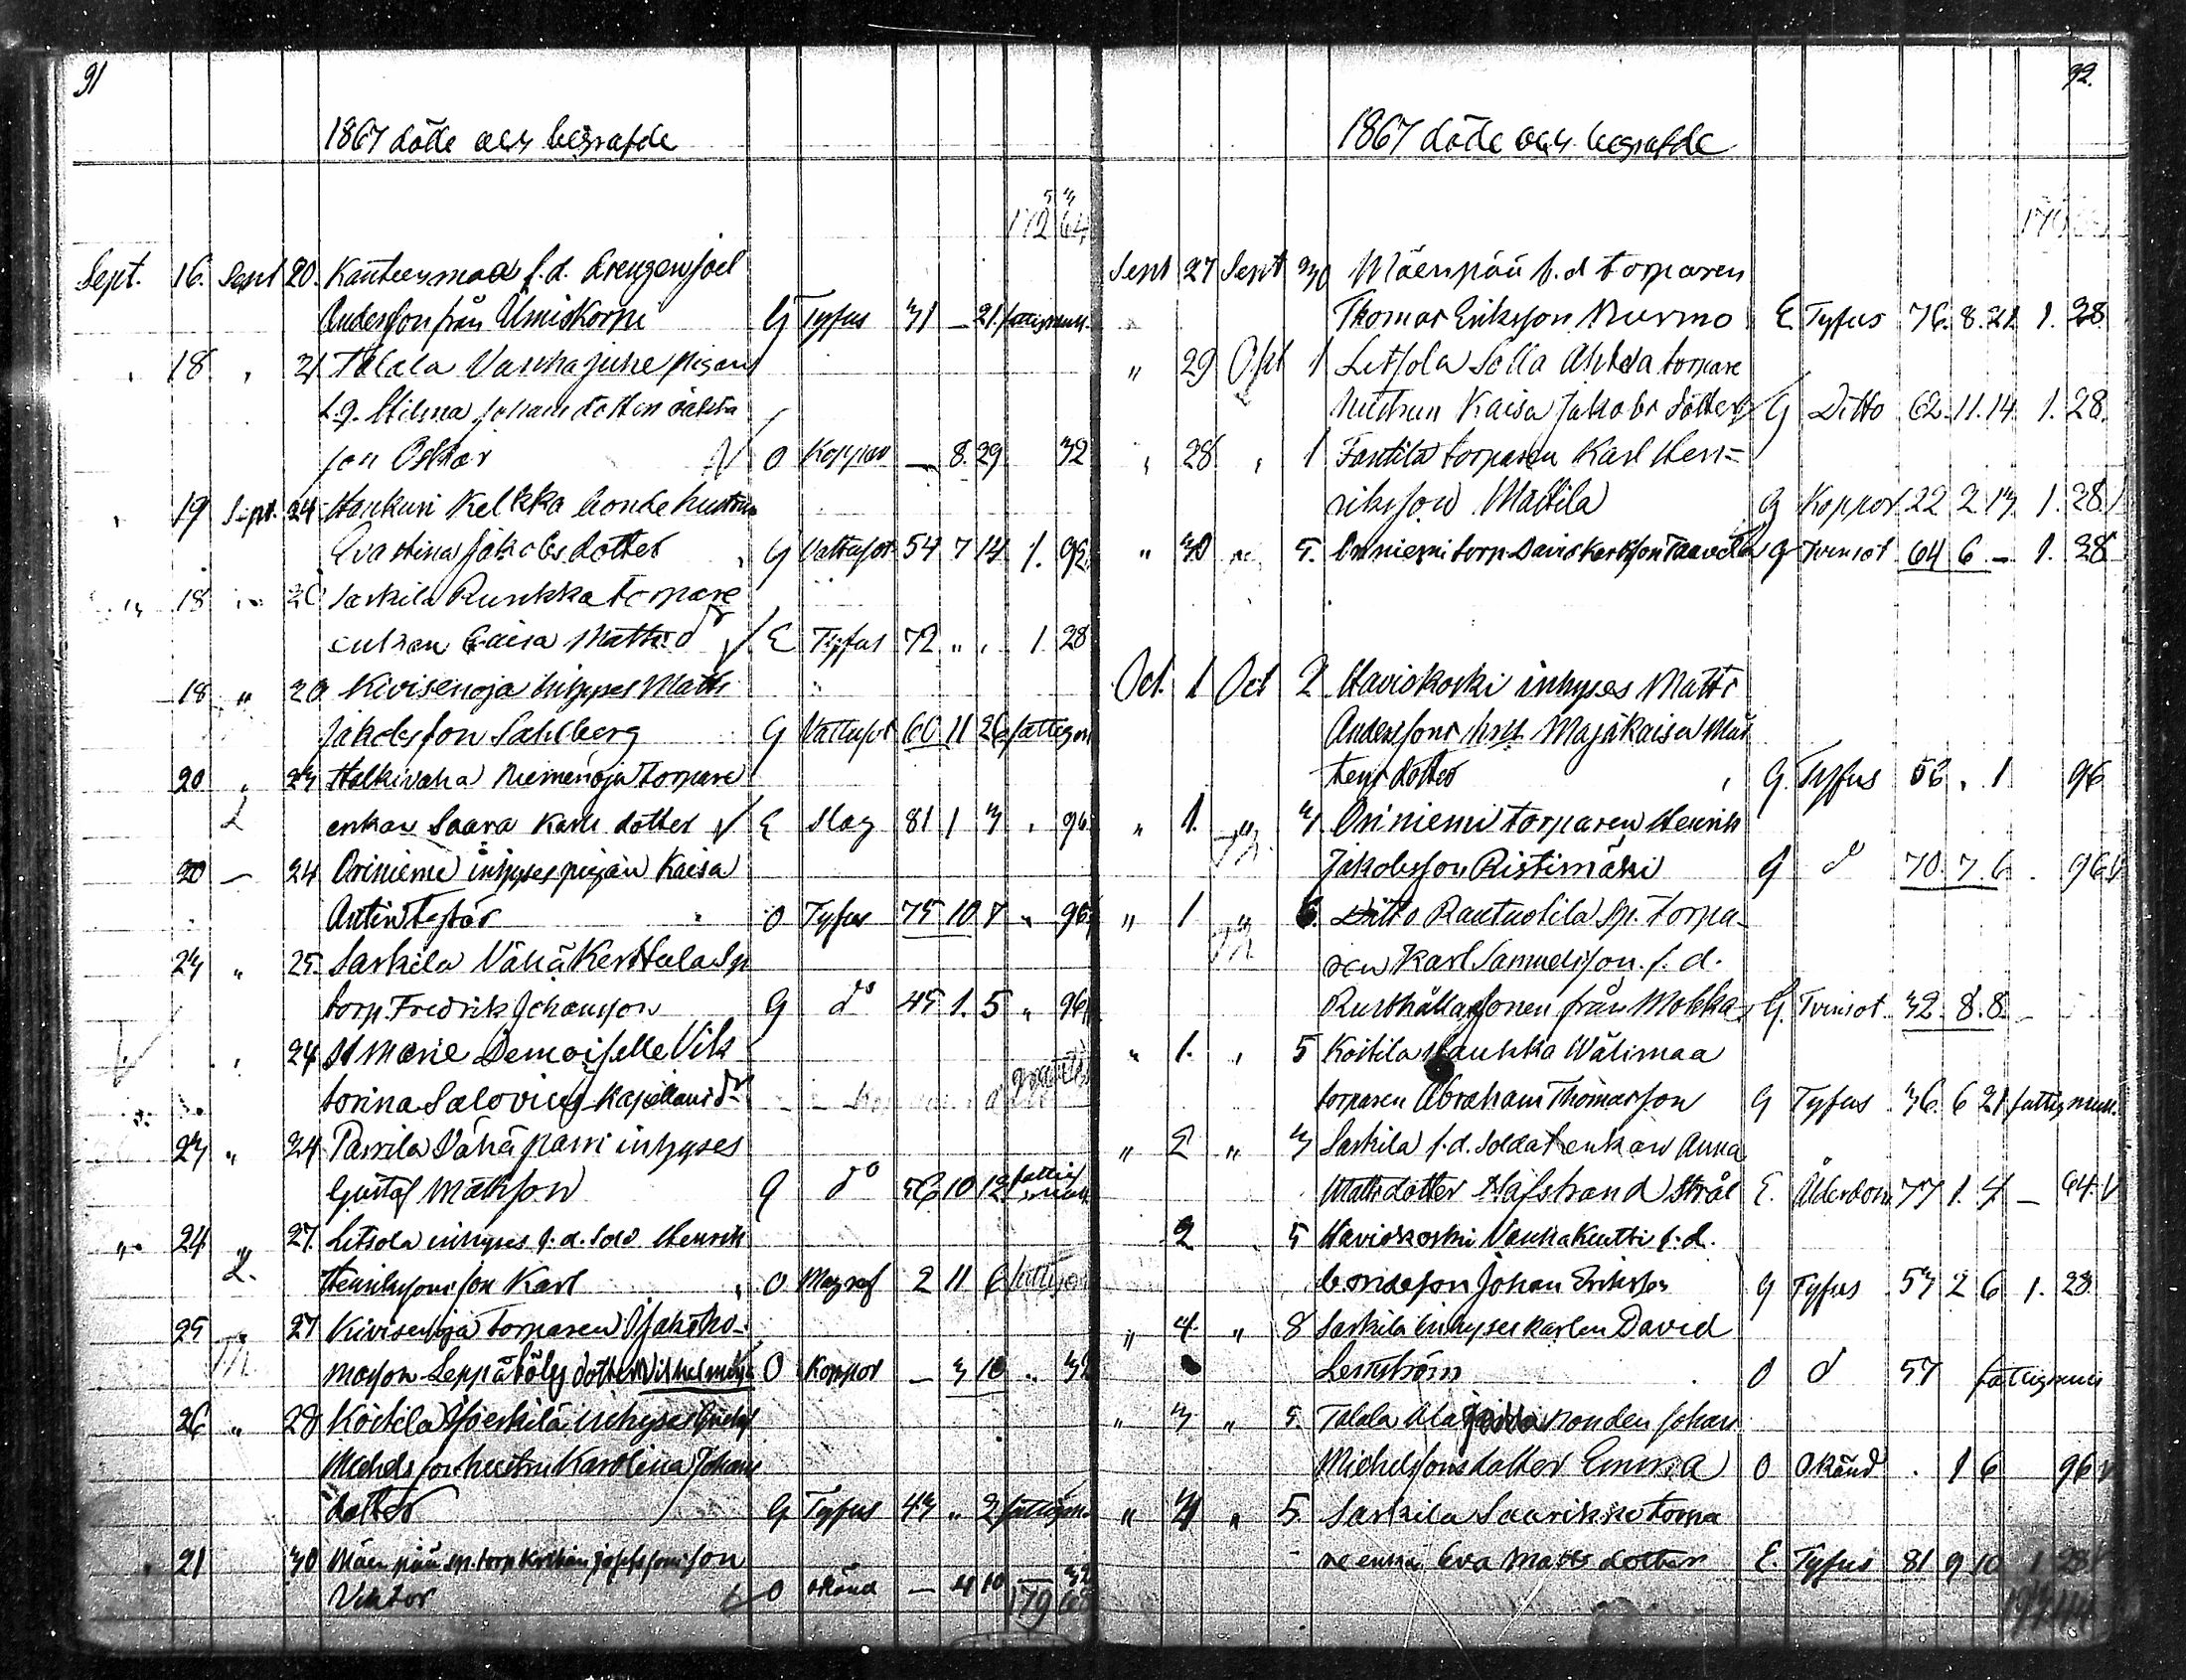 91
1867 döde och begrafde
172 64
Sept. 16. Sept 20. Kauteenmaa f.d. drengen Joel
Andersson från Ulmiskorpi G Tyfus 31 — 21. fattigmull.
" 18. " 21. Talala Vanhajune pigans
Johans dotters oäkta
son Oskar O Koppor — 8. 29 32
" 19 Sept. 24 Haukuri Kelkka bonde hustrun
Eva Stina Jakobs dotter G Vattusot 54 7 14 1. 92
" 18 " 20 Sarkila Runkka torpare
enkan Caisa Matts dr E Tyfus 72 " " 1 28
18 " 20 Kivisenoja inhyses Matts
Jakobsson Sahlberg G Vattusot 60 11 26 fattigm
20 " 23 Halkivaha Niemenoja torpare
enkan Saara Karls dotter E Slag 81 1 3 " 96
20 — 24 Oriniemi inhyses pigan Kaisa
Antin Tytär O Tyfus 75 10 7 " 96
23 " 25. Sarkila Vähä Kerttula sp
torp. Fredrik Johansson G do 45 1. 5 " 96
" 24 St Marie Demoiselle Vik
torina Salovius Kapellans dr
23 " 24 Parrila Vähäparri inhyses
Gustaf Mattsson G do 56 10 12 fattig mull
" 24 " 27. Letsola inhyses f.d. sold Henrik
Henrikssons son Karl O Magref 2 11 6 fattigm
25 " 27 Kivisenoja torparen Isak Tho-
masson Leppäkölys dotter Vilhelmina O Koppor — 3 10 " 32
26 " 28 Koitila Yoerkilä inhyses Gustaf
Michelssons hustru Karolina Johans
dotter G Tyfus 43 " 2 fattigm.
" 21 30 Mäenpää sp. torp Kristian Josefssons son
Viktor O okänd — 4 10 — 32
179 68
92.
1867 döde och begrafde
Sept 27 Sept 30 Mäenpää f.d torparen
Thomas Eriksson Nurmo E Tyfus 76. 8. 21 1. 28
" 29 Okt 1 Letsola Solla Ahtola torpare
hustrun Kaisa Jakobs dotter G Ditto 62. 11. 14. 1. 28.
" 28 " 1 Fantila torparen Karl Hen-
riksson Mattila G Koppor 22 2 13. 1. 28
" 30 " 5. Oriniemi torp David Karlsson Taavela G Tvinsot 64 6 — 1. 28
Oct. 1 Oct 2 Haviokoski inhyses Matts
Anderssons hust Maja Kaisa Mår
tens dotter G. Tyfus 56 " 1 96
" 1. " 3. Oriniemi torparen Henrik
Jakobsson Ristimäki G do 70. 7. 6 96
" 1 " 6. Ditto Rautuotila sp. torpa-
ren Karl Samuelsson f. d.
Rusthållarsonen från Mokka G. Tvinsot 32 8 8
" 1. " 5 Koitila Haukka Wälimaa
torparen Abraham Thomasson G Tyfus 36 6 21 fattigmull.
" 2 " 3 Sarkila f.d. soldatenkan Anna
Mattsdotter Hafstrand Strål E. Ålderdom 77 1. 4 — 64.
2 " 5 Haviokoski Vanhakutti f.d.
bondeson Johan Eriksson G Tyfus 53 2 6 1. 28
" 4. " 8 Sarkila inhyseskarlen David
Lemström O do 57 fattigmull
" 3 " 5. Talala Alajalla bonden Johan
Michelssons dotter Emma O Okänd " 1 6 96
" 4 " 5. Sarkila Saarikko torpa
re enka Eva Matts dotter E. Tyfus 81 9 10 1 28